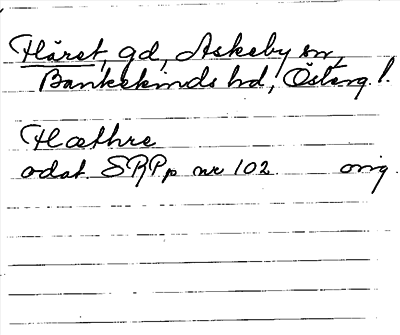 Häret, gd, Askeby sn,
Bankekinds hd, Österg!.
Hæthre
odat. SRPp nr 102. orig.